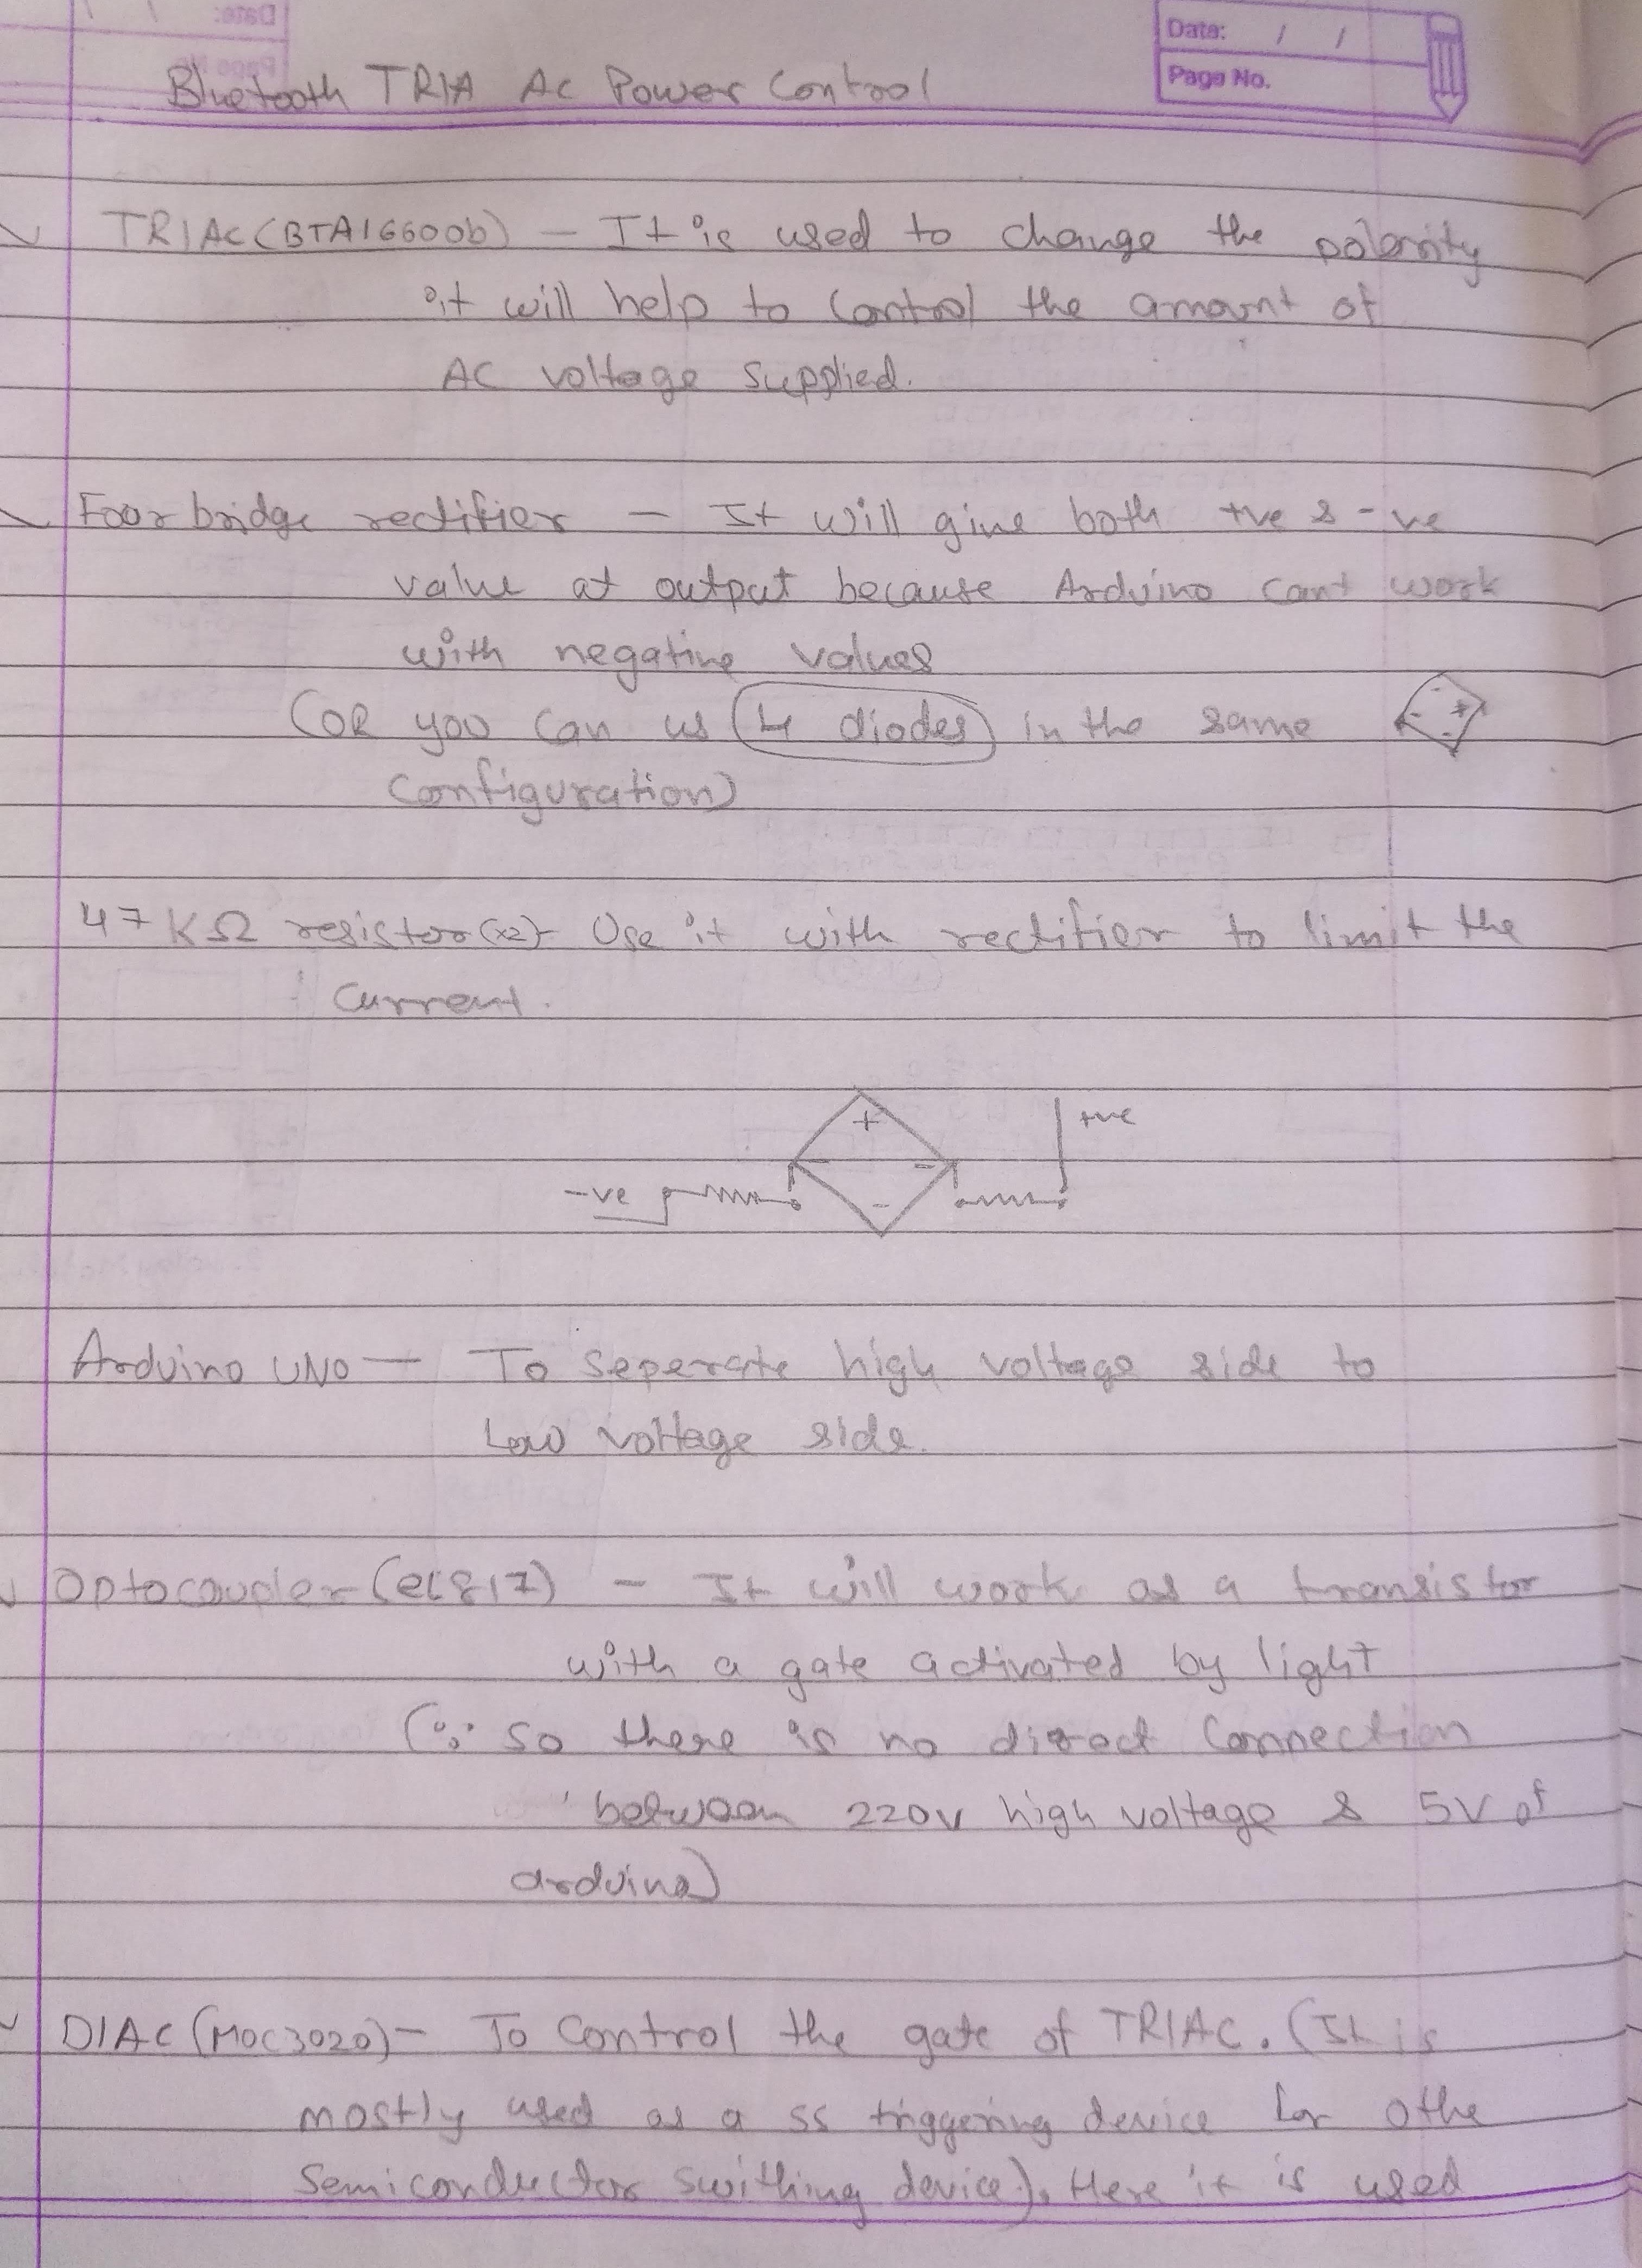 Date: / /
Page No.
Bluetooth TRIA AC Power Control
TRIAC (BTA16600b) - It is used to change the polarity
it will help to control the amount of
AC voltage supplied.
Four bridge rectifier - It will give both +ve & -ve
value at output because Arduino cant work
with negative values
(OR you can us 4 diodes in the same
configuration)
47 KΩ resistor (x2) - Use it with rectifier to limit the
current.
+ +ve
- -
-ve -
Arduino UNO - To seperate high voltage side to
low voltage side.
Optocoupler (el817) - It will work as a transistor
with a gate activated by light
(∵ so there is no direct connection
between 220v high voltage & 5V of
arduino)
DIAC (MOC3020) - To control the gate of TRIAC. (It is
mostly used as a ss triggering device for othe
semiconductor swithing device). Here it is used